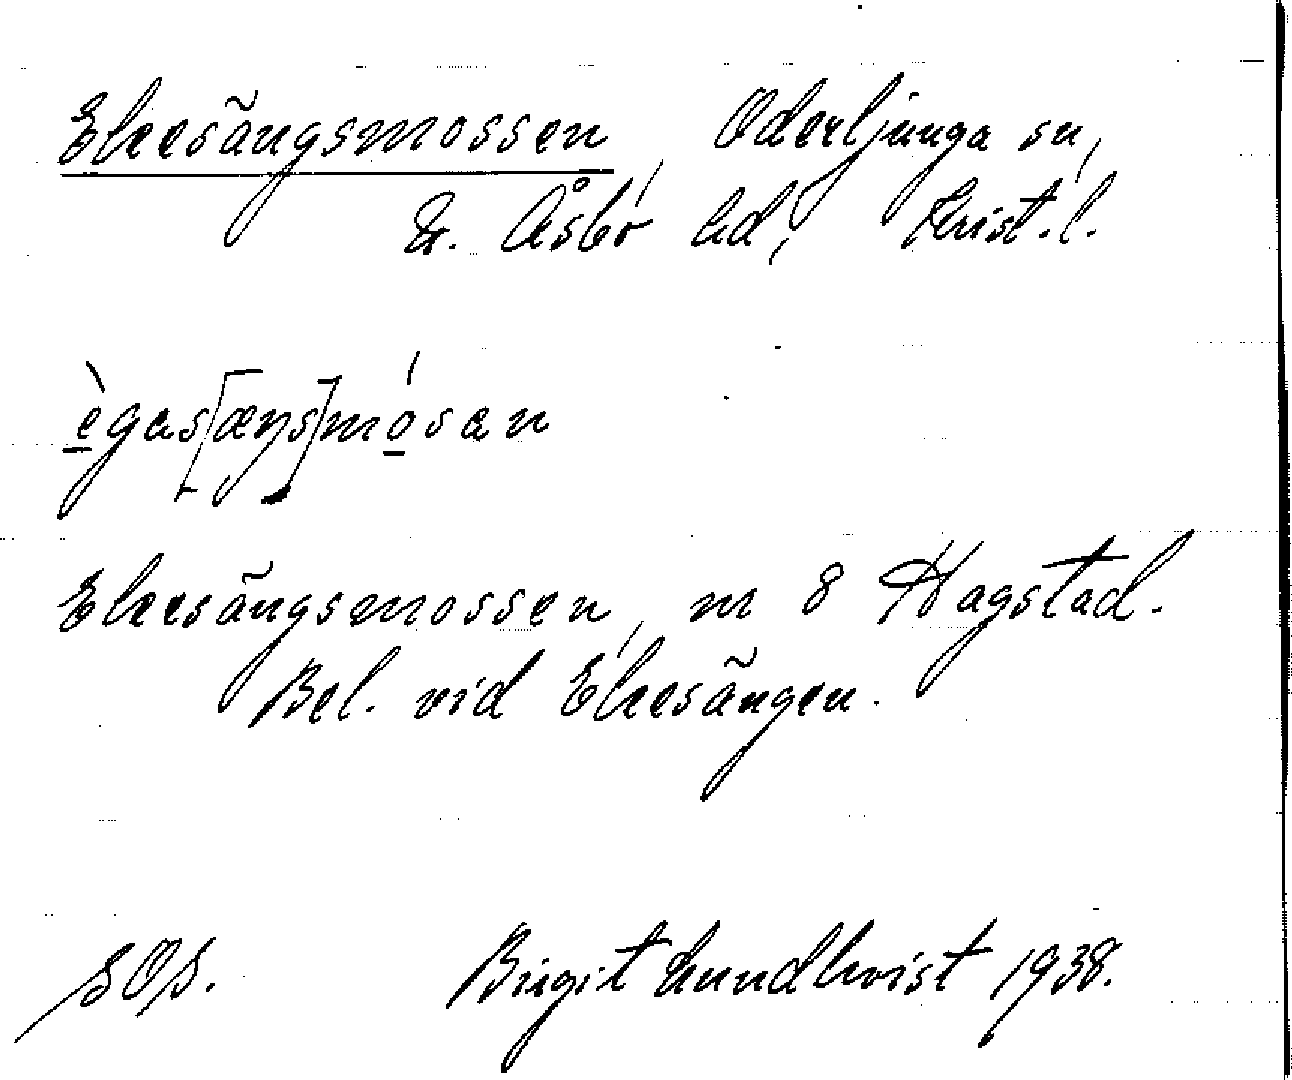 Ekesängsmossen, Oderljunga sn,
N. Åsbo hd, Krist. l.
ègas[æŋs]mósan
Ekesängsmossen, m 8 Hagstad.
Bel. vid Ekesängen.
SOS. Birgit Lundkvist 1938.